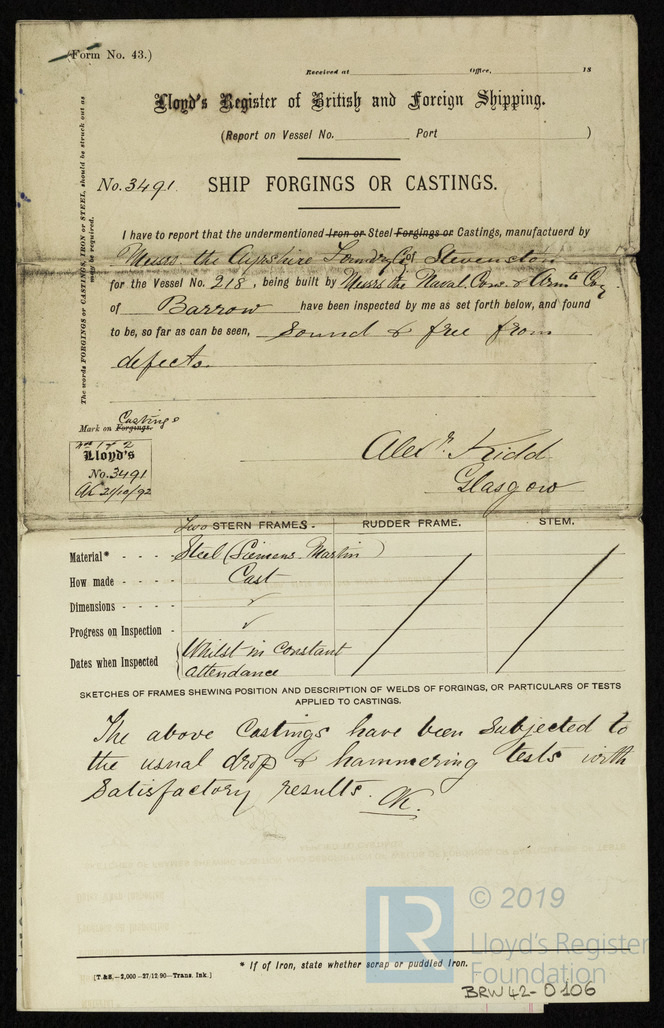 (Form No. 43.)
Received at Office, 18
Lloyd's Register of British and Foreign Shipping.
(Report on Vessel No. Port )
No. 3491. SHIP FORGINGS OR CASTINGS.
The words FORGINGS or CASTINGS, IRON or STEEL, should be struck out as
may be required.
I have to report that the undermentioned Iron or Steel Forgings or Castings, manufactuerd by
Messrs the Ayrshire Foundry Co of Stevenston
for the Vessel No. 218, being built by Messrs the Naval Con. & Armts Coy
of Barrow have been inspected by me as set forth below, and found
to be, so far as can be seen, Sound & free from
defects.
Castings
Mark on Forgings.
No 1 & 2
Lloyd's
No. 3491
AK 21/10/92
Alexr. Kidd
Glasgow
Two STERN FRAMES. RUDDER FRAME. STEM.
Material* - - - - Steel (Siemens Martin)
How made - - - - Cast
Dimensions - - - - ✓
Progress on Inspection - ✓
Dates when Inspected { Whilst in constant
attendance
SKETCHES OF FRAMES SHEWING POSITION AND DESCRIPTION OF WELDS OF FORGINGS, OR PARTICULARS OF TESTS
APPLIED TO CASTINGS.
The above Castings have been Subjected to
the usual drop & hammering tests with
Satisfactory results. AK.
* If of Iron, state whether scrap or puddled Iron.
[T.&S.—2,000—27/12/90—Trans. Ink.]
LR
© 2019
Lloyd's Register
Foundation
BRW42-0106